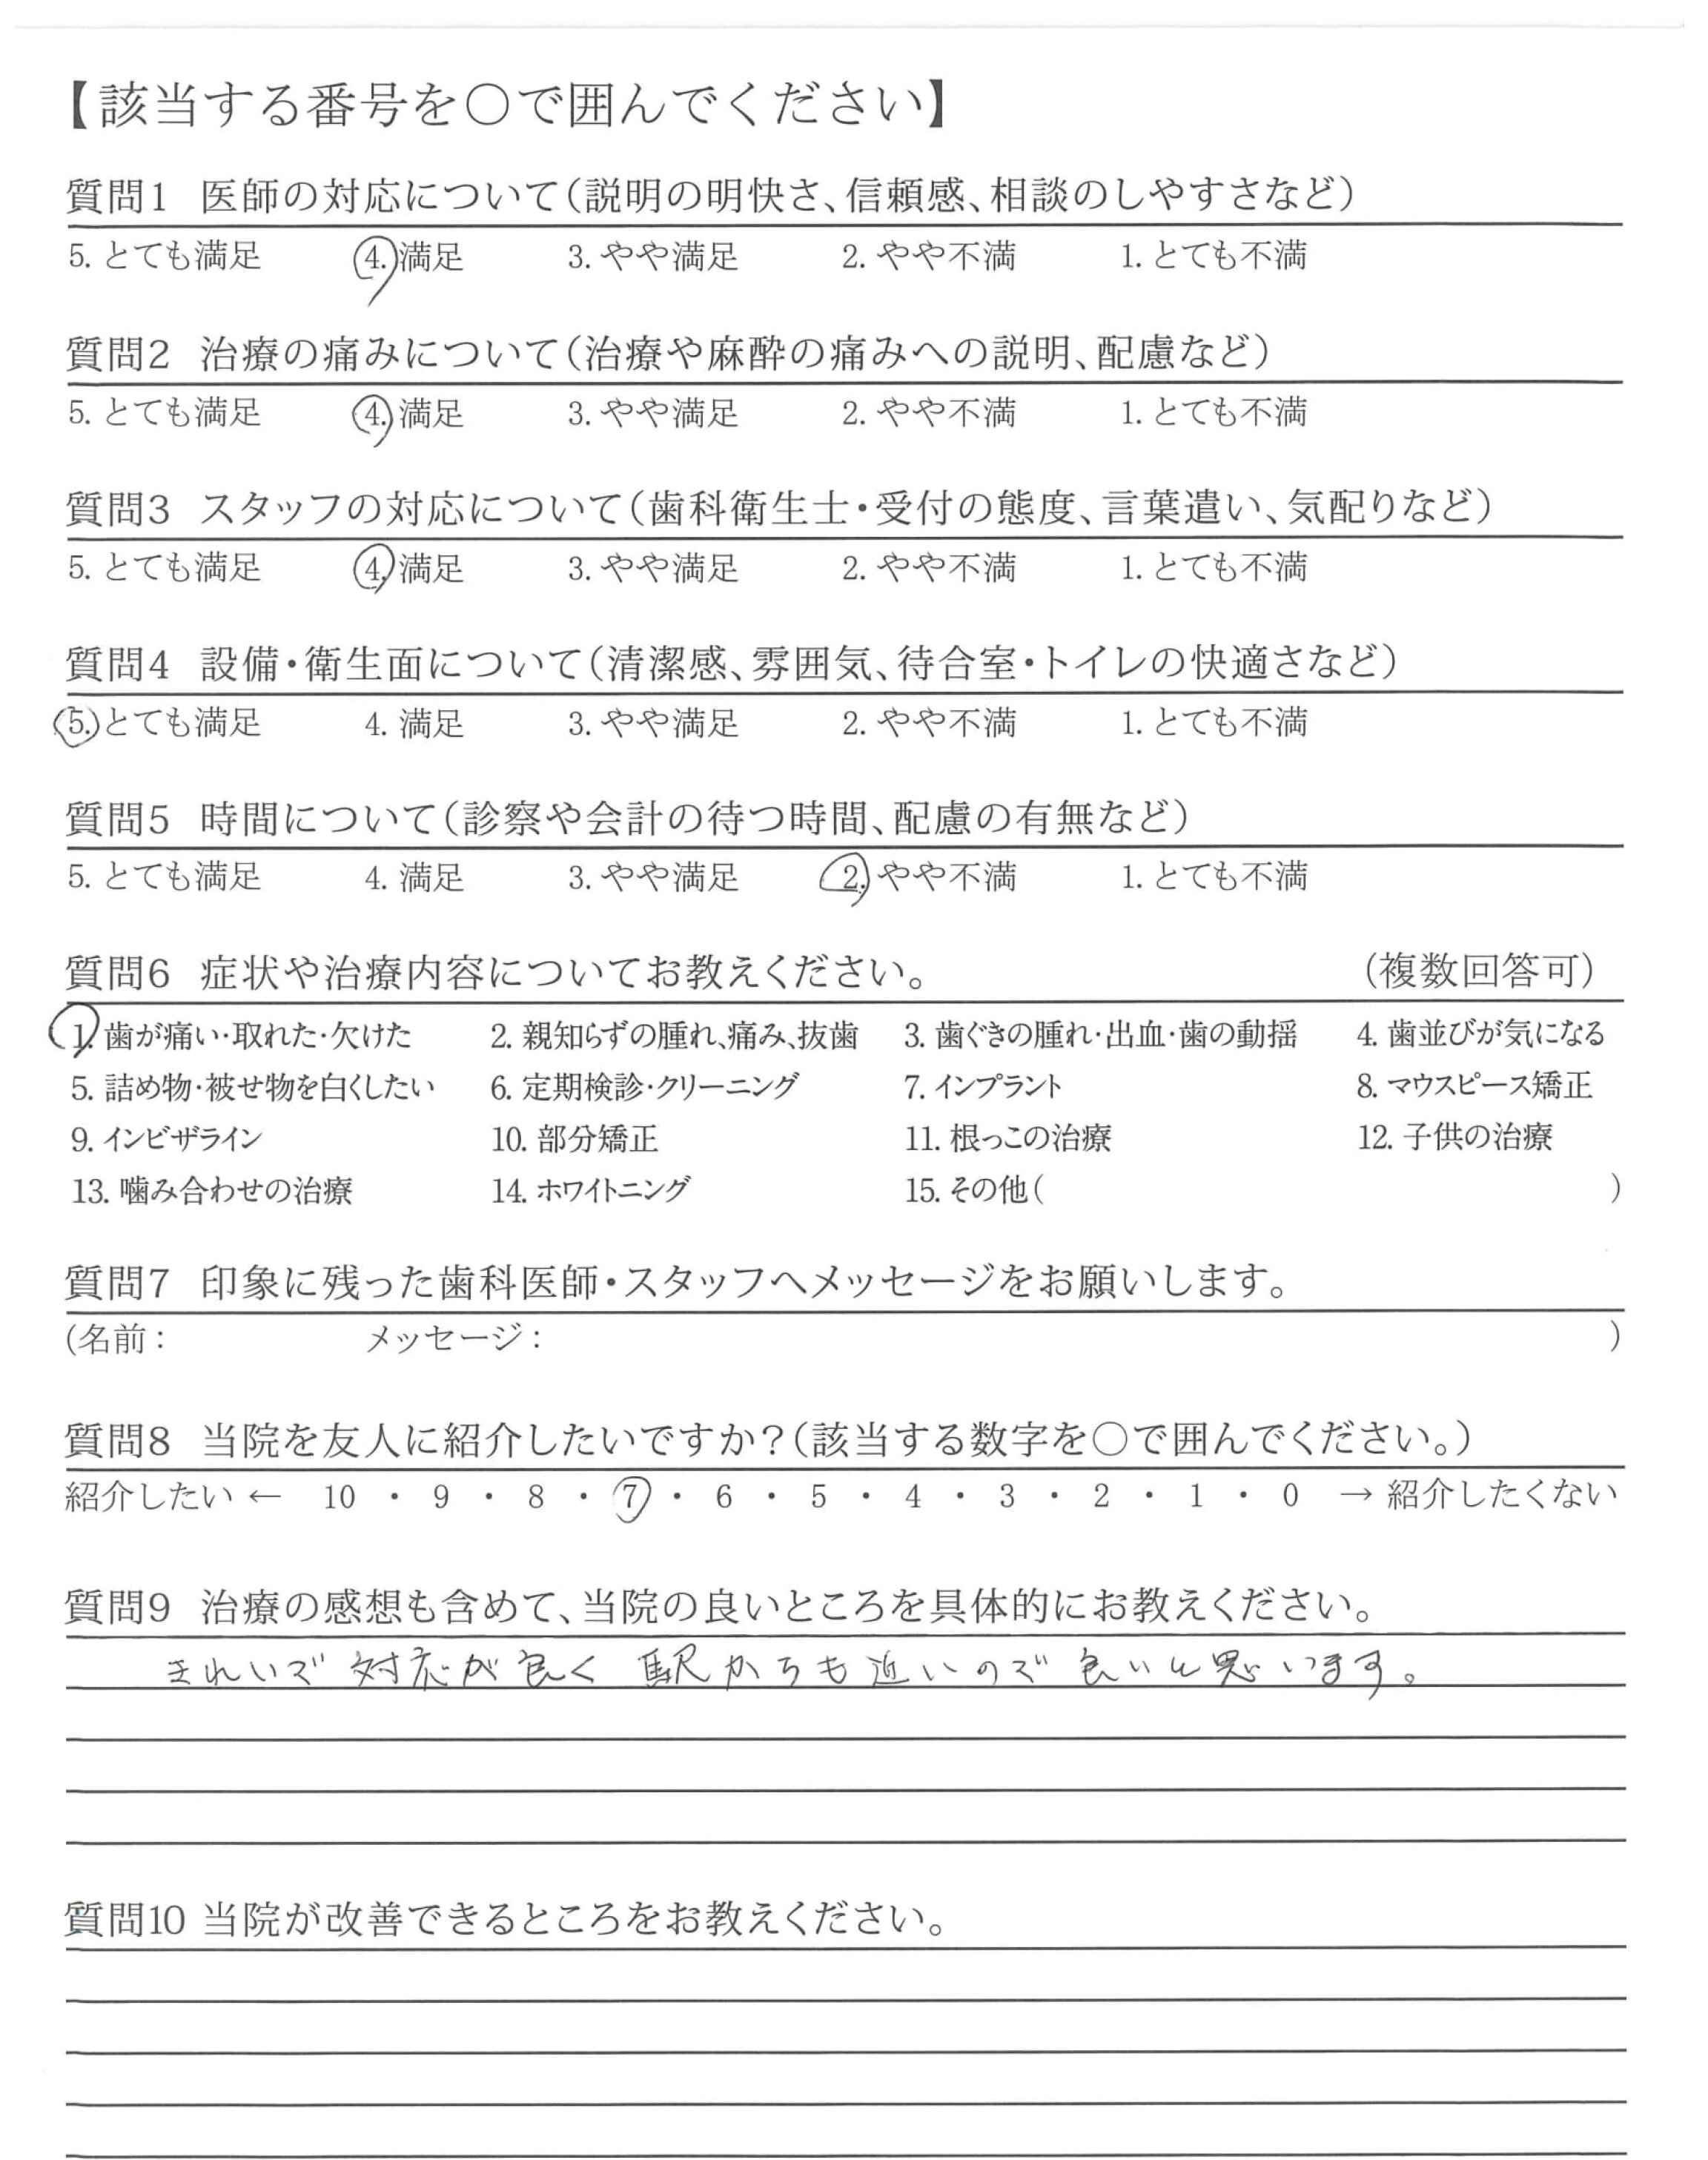 【該当する番号を○で囲んでください】
質問1 医師の対応について(説明の明快さ、信頼感、相談のしやすさなど)
5. とても満足 4. 満足 3. やや満足 2. やや不満 1. とても不満
質問2 治療の痛みについて(治療や麻酔の痛みへの説明、配慮など)
5. とても満足 4. 満足 3. やや満足 2. やや不満 1. とても不満
質問3 スタッフの対応について(歯科衛生士・受付の態度、言葉遣い、気配りなど)
5. とても満足 4. 満足 3. やや満足 2. やや不満 1. とても不満
質問4 設備・衛生面について(清潔感、雰囲気、待合室・トイレの快適さなど)
5. とても満足 4. 満足 3. やや満足 2. やや不満 1. とても不満
質問5 時間について(診察や会計の待つ時間、配慮の有無など)
5. とても満足 4. 満足 3. やや満足 2. やや不満 1. とても不満
質問6 症状や治療内容についてお教えください。 (複数回答可)
1. 歯が痛い・取れた・欠けた 2. 親知らずの腫れ、痛み、抜歯 3. 歯ぐきの腫れ・出血・歯の動揺 4. 歯並びが気になる
5. 詰め物・被せ物を白くしたい 6. 定期検診・クリーニング 7. インプラント 8. マウスピース矯正
9. インビザライン 10. 部分矯正 11. 根っこの治療 12. 子供の治療
13. 噛み合わせの治療 14. ホワイトニング 15. その他( )
質問7 印象に残った歯科医師・スタッフへメッセージをお願いします。
(名前: メッセージ: )
質問8 当院を友人に紹介したいですか?(該当する数字を○で囲んでください。)
紹介したい ← 10 ・ 9 ・ 8 ・ 7 ・ 6 ・ 5 ・ 4 ・ 3 ・ 2 ・ 1 ・ 0 → 紹介したくない
質問9 治療の感想も含めて、当院の良いところを具体的にお教えください。
きれいで 対応が良く 駅からも近いので 良いと思います。
質問10 当院が改善できるところをお教えください。